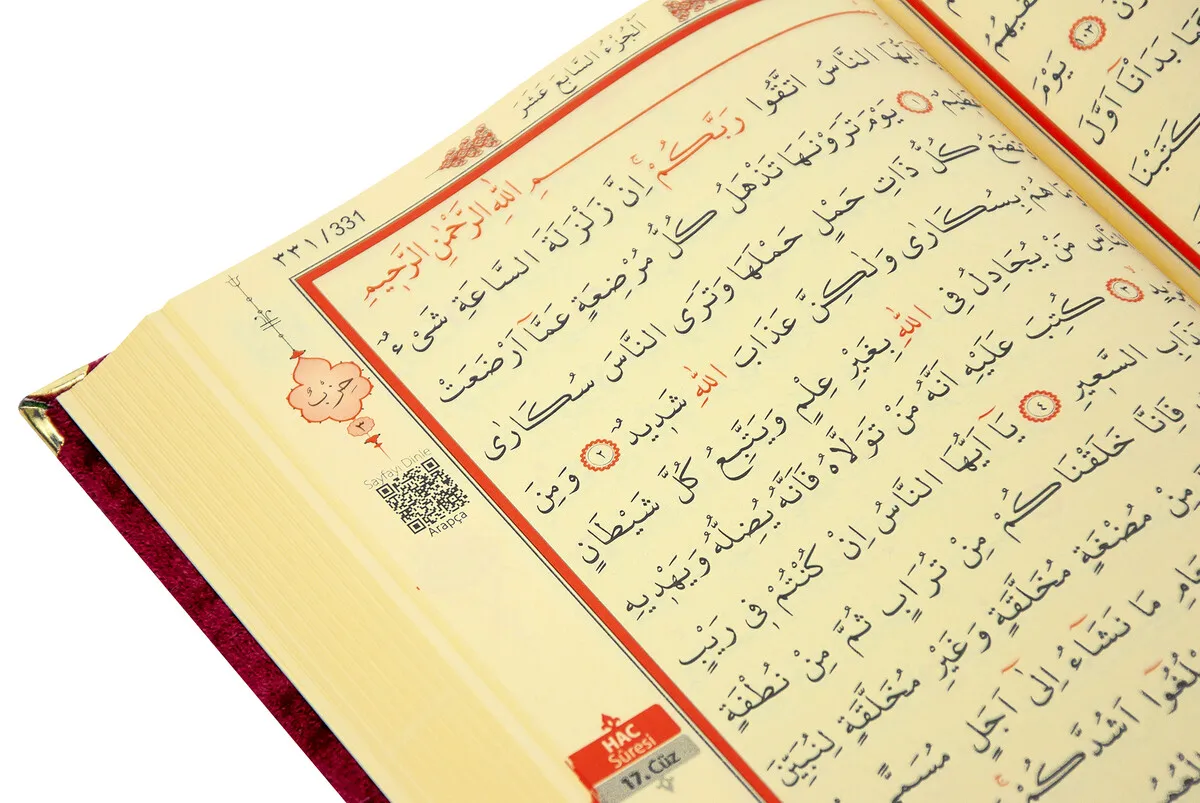 اَلْجُزْءُ السَّابِعَ عَشَرَ
٣٣١ / 331
بِسْمِ اللّٰهِ الرَّحْمٰنِ الرَّح۪يمِ
اَيُّهَا النَّاسُ اتَّقُوا رَبَّكُمْۚ اِنَّ زَلْزَلَةَ السَّاعَةِ شَيْءٌ
١ يَوْمَ تَرَوْنَهَا تَذْهَلُ كُلُّ مُرْضِعَةٍ عَمَّٓا اَرْضَعَتْ
كُلُّ ذَاتِ حَمْلٍ حَمْلَهَا وَتَرَى النَّاسَ سُكَارٰى
هُمْ بِسُكَارٰى وَلٰكِنَّ عَذَابَ اللّٰهِ شَد۪يدٌ ٢ وَمِنَ
مَنْ يُجَادِلُ فِي اللّٰهِ بِغَيْرِ عِلْمٍ وَيَتَّبِعُ كُلَّ شَيْطَانٍ
٣ كُتِبَ عَلَيْهِ اَنَّهُ مَنْ تَوَلَّاهُ فَاَنَّهُ يُضِلُّهُ وَيَهْد۪يهِ
السَّع۪يرِ ٤ يَٓا اَيُّهَا النَّاسُ اِنْ كُنْتُمْ ف۪ي رَيْبٍ
فَاِنَّا خَلَقْنَاكُمْ مِنْ تُرَابٍ ثُمَّ مِنْ نُطْفَةٍ
مِنْ مُضْغَةٍ مُخَلَّقَةٍ وَغَيْرِ مُخَلَّقَةٍ لِنُبَيِّنَ
مَا نَشَٓاءُ اِلٰٓى اَجَلٍ مُسَمًّى
اَشُدَّكُمْۚ
حِزْبٌ
٣
Sayfayı Dinle
Arapça
HAC
Sûresi
17. Cüz
١٠٣ يَوْمَ
بَدَأْنَٓا اَوَّلَ